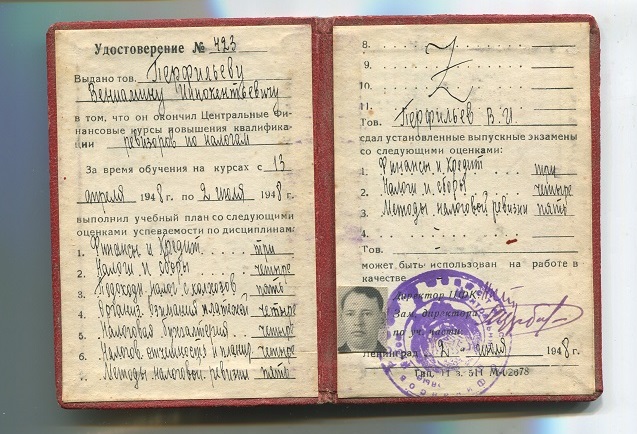 Удостоверение № 423
Выдано тов. Перфильеву
Вениамину Иннокентьевичу
в том, что он окончил Центральные Фи-
нансовые курсы повышения квалифика-
ции ревизоров по налогам
За время обучения на курсах с 13
апреля 1948 г. по 2 июля 1948 г.
выполнил учебный план со следующими
оценками успеваемости по дисциплинам:
1. Финансы и Кредит три
2. Налоги и сборы четыре
3. Подоходн. налог с колхозов пять
4. взимания платежей четыре
5. Налоговая бухгалтерия четыре
6. Налогов. отчетность и планир. четыре
7. Методы налоговой ревизии пять
8.
9.
10.
11.
Тов. Перфильев В. И.
сдал установленные выпускные экзамены
со следующими оценками:
1. Финансы и Кредит три
2. Налоги и сборы четыре
3. Методы налоговой ревизии пять
4. -
Тов. -
может быть использован на работе в
качестве -
Директор ЦФК
Зам. директора
по уч. части
Ленинград 2 - июля 1948 г.
Тип. 11 з. 511 М-12678